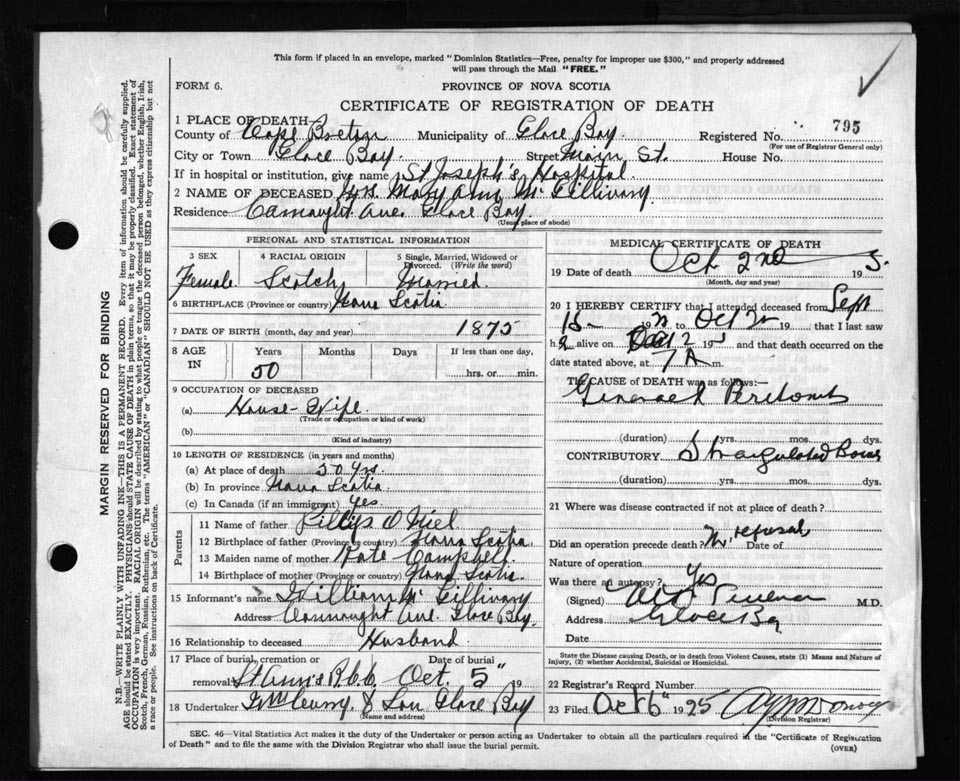 This form if placed in an envelope, marked "Dominion Statistics—Free, penalty for improper use $300," and properly addressed
will pass through the Mail "FREE."
FORM 6.
PROVINCE OF NOVA SCOTIA
CERTIFICATE OF REGISTRATION OF DEATH
1 PLACE OF DEATH
County of Cape Breton Municipality of Glace Bay. Registered No. 795
(For use of Registrar General only)
City or Town Glace Bay. Street Main St. House No.
If in hospital or institution, give name St Joseph's Hospital.
2 NAME OF DECEASED Mrs. Mary Ann McGillivary.
Residence Connaught Ave. Glace Bay.
(Usual place of abode)
PERSONAL AND STATISTICAL INFORMATION
3 SEX 4 RACIAL ORIGIN 5 Single, Married, Widowed or
Divorced. (Write the word)
Female Scotch Married.
6 BIRTHPLACE (Province or country) Nova Scotia
7 DATE OF BIRTH (month, day and year) 1875
8 AGE IN Years Months Days If less than one day,
50 hrs. or min.
9 OCCUPATION OF DECEASED
(a) House-Wife.
(Trade or occupation or kind of work)
(b)
(Kind of industry)
10 LENGTH OF RESIDENCE (in years and months)
(a) At place of death 50 yrs.
(b) In province Nova Scotia.
(c) In Canada (if an immigrant) Yes
Parents
11 Name of father O'Niel
12 Birthplace of father (Province or country) Nova Scotia.
13 Maiden name of mother Kate Campbell.
14 Birthplace of mother (Province or country) Nova Scotia.
15 Informant's name William McGillivary
Address Connaught Ave. Glace Bay.
16 Relationship to deceased Husband.
17 Place of burial, cremation or Date of burial
removal St Ann's Oct. 5" 19
18 Undertaker & Son Glace Bay
(Name and address)
MEDICAL CERTIFICATE OF DEATH
19 Date of death Oct 2nd 19 5.
(Month, day and year)
20 I HEREBY CERTIFY that I attended deceased from Sept
15 19 to Oct 2 19 that I last saw
h alive on Oct 2 19 and that death occurred on the
date stated above, at 7 A m.
THE CAUSE OF DEATH was as follows:—
General Peritonitis
(duration) yrs. mos. dys.
CONTRIBUTORY Strangulated Bowel
(duration) yrs. mos. dys.
21 Where was disease contracted if not at place of death?
Did an operation precede death? No. refusal Date of
Nature of operation
Was there an autopsy? Yes
(Signed) M.D.
Address Glace Bay
Date
State the Disease causing Death, or in death from Violent Causes, state (1) Means and Nature of
Injury, (2) whether Accidental, Suicidal or Homicidal.
22 Registrar's Record Number
23 Filed Oct 6 1925
(Division Registrar)
SEC. 46—Vital Statistics Act makes it the duty of the Undertaker or person acting as Undertaker to obtain all the particulars required in the "Certificate of Registration
of Death" and to file the same with the Division Registrar who shall issue the burial permit.
(OVER)
MARGIN RESERVED FOR BINDING
N.B.—WRITE PLAINLY WITH UNFADING INK—THIS IS A PERMANENT RECORD. Every item of information should be carefully supplied.
AGE should be stated EXACTLY. PHYSICIANS should STATE CAUSE OF DEATH in plain terms, so that it may be properly classified. Exact statement of
OCCUPATION is very important. RACIAL ORIGIN will be described by stating to what people or tongue the deceased person belonged, whether English, Irish,
Scotch, French, German, Russian, Ruthenian, etc. The terms "AMERICAN" or "CANADIAN" SHOULD NOT BE USED as they express citizenship but not
a race or people. See instructions on back of Certificate.